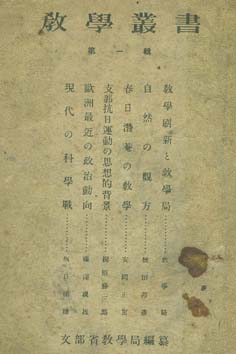 教學叢書
第一輯
教學刷新と教學局
教學局
自然の觀方
春日潛菴の教學
支那抗日運動の思想的背景
歐洲最近の政治動向
現代の科學戰
文部省教學局編纂